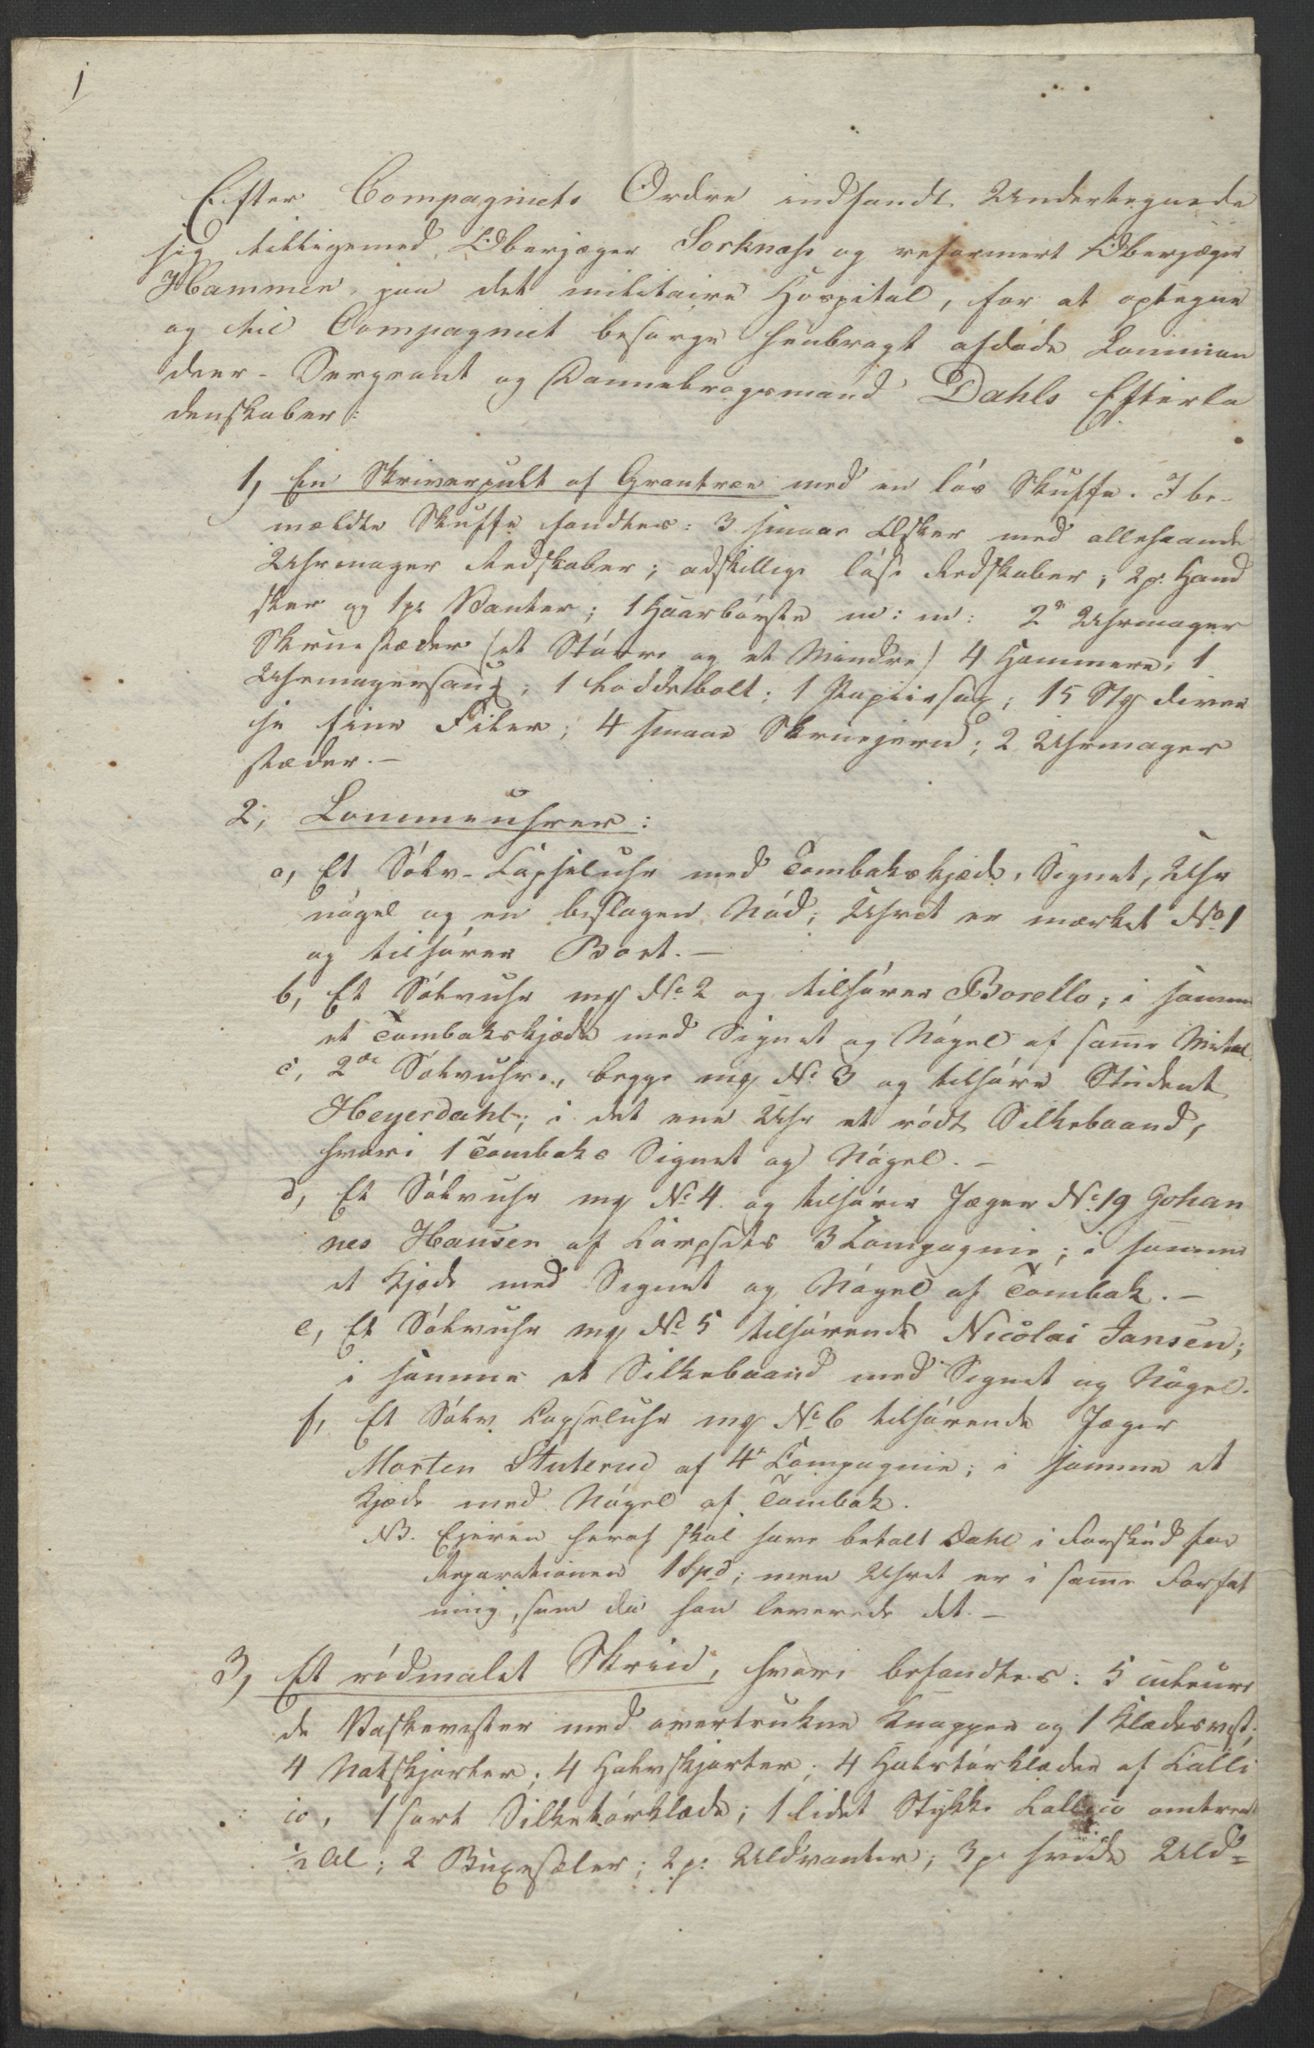 1
Efter Compagniets Ordre indfandt Undertegnede
sig tilligemed Oberjæger Sorknæs og reformert Oberjæger
Hammer paa det militaire Hospital, for at optegne
og til Compagniet besørge henbragt afdøde Comman
deer-Sergeant og Dannebrogsmand Dahls Efterla
denskaber:
1, En Skriverpult af Grantræe med en løs Skuffe. I be-
mældte Skuffe fandtes: 3 smaae Æsker med allehaande
Uhrmager Redskaber; adskillige løse Redskaber; 2 pr Hand
sker og 1 pr Vanter; 1 Haarbørste m: m: 2de Uhrmager
Skruestæder (et Større og et Mindre) 4 Hammere; 1
Uhrmagersaug; 1 Loddebolt; 1 Papiirsax; 15 Stk diver
se fine Filer; 4 smaae Skruejern; 2 Uhrmager
stæder.-
2, Lommeuhrer:
a, Et Sølv-Capseluhr med Tombakskjæde, Signet, Uhr
nøgel og en beslagen Nød; Uhret er mærket No 1
og tilhører Boet.-
b, Et Sølvuhr mk No 2 og tilhører Borello; i samme
et Tombakskjæde med Signet og Nøgel af samme Metal.
c, 2de Sølvuhre, begge mk No 3 og tilhøre Student
Heyerdahl; i det ene Uhr et rødt Silkebaand,
hvori 1 Tombaks Signet og Nøgel.-
d, Et Sølvuhr mk No 4 og tilhører Jæger No 19 Johan
nes Hansen af Corpsets 3 Compagnie; i samme
et Kjæde med Signet og Nøgel af Tombak.-
e, Et Sølvuhr mk No 5 tilhørende Nicolai Jansen;
i samme et Silkebaand med Signet og Nøgel.
f, Et Sølv Capseluhr mk No 6 tilhørende Jæger
Morten Stuterud af 4de Compagnie; i samme et
Kjæde med Nøgel af Tombak.
NB. Ejeren heraf skal have betalt Dahl i Forskud for
Reparationen 1 Spd; men Uhret er i samme Forfat
ning, som da han leverede det.-
3, Et rødmalet Skrin, hvori befandtes: 5 couleure
de Vaskevester med overtrukne Knapper og 1 Klædesvest;
4 Natskjorter; 4 Halvskjorter; 4 Halstørklæder af Calli
co, 1 sort Silketørklæde; 1 lidet Stykke Callico omtrent
1/2 Al; 2 Buxeseler; 2 pr Uldvanter; 3 pr hvide Uld=